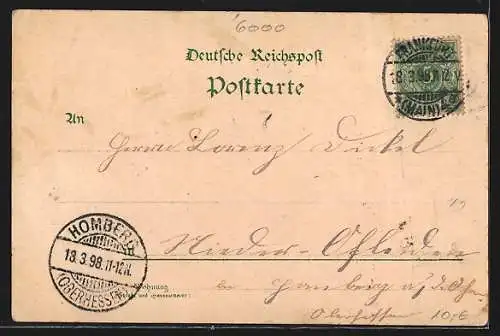 6000
Deutsche Reichspost
Postkarte
FRANKFURT
18.3.98.11-12.V.
(MAIN)
An
Herrn Lorenz Dickel
Nieder-Ofleiden
HOMBERG
18.3.98.11-12.N.
(OBERHESSEN)
Wohnung
bei Homberg a/d Ohm
Oberhessen
10,6